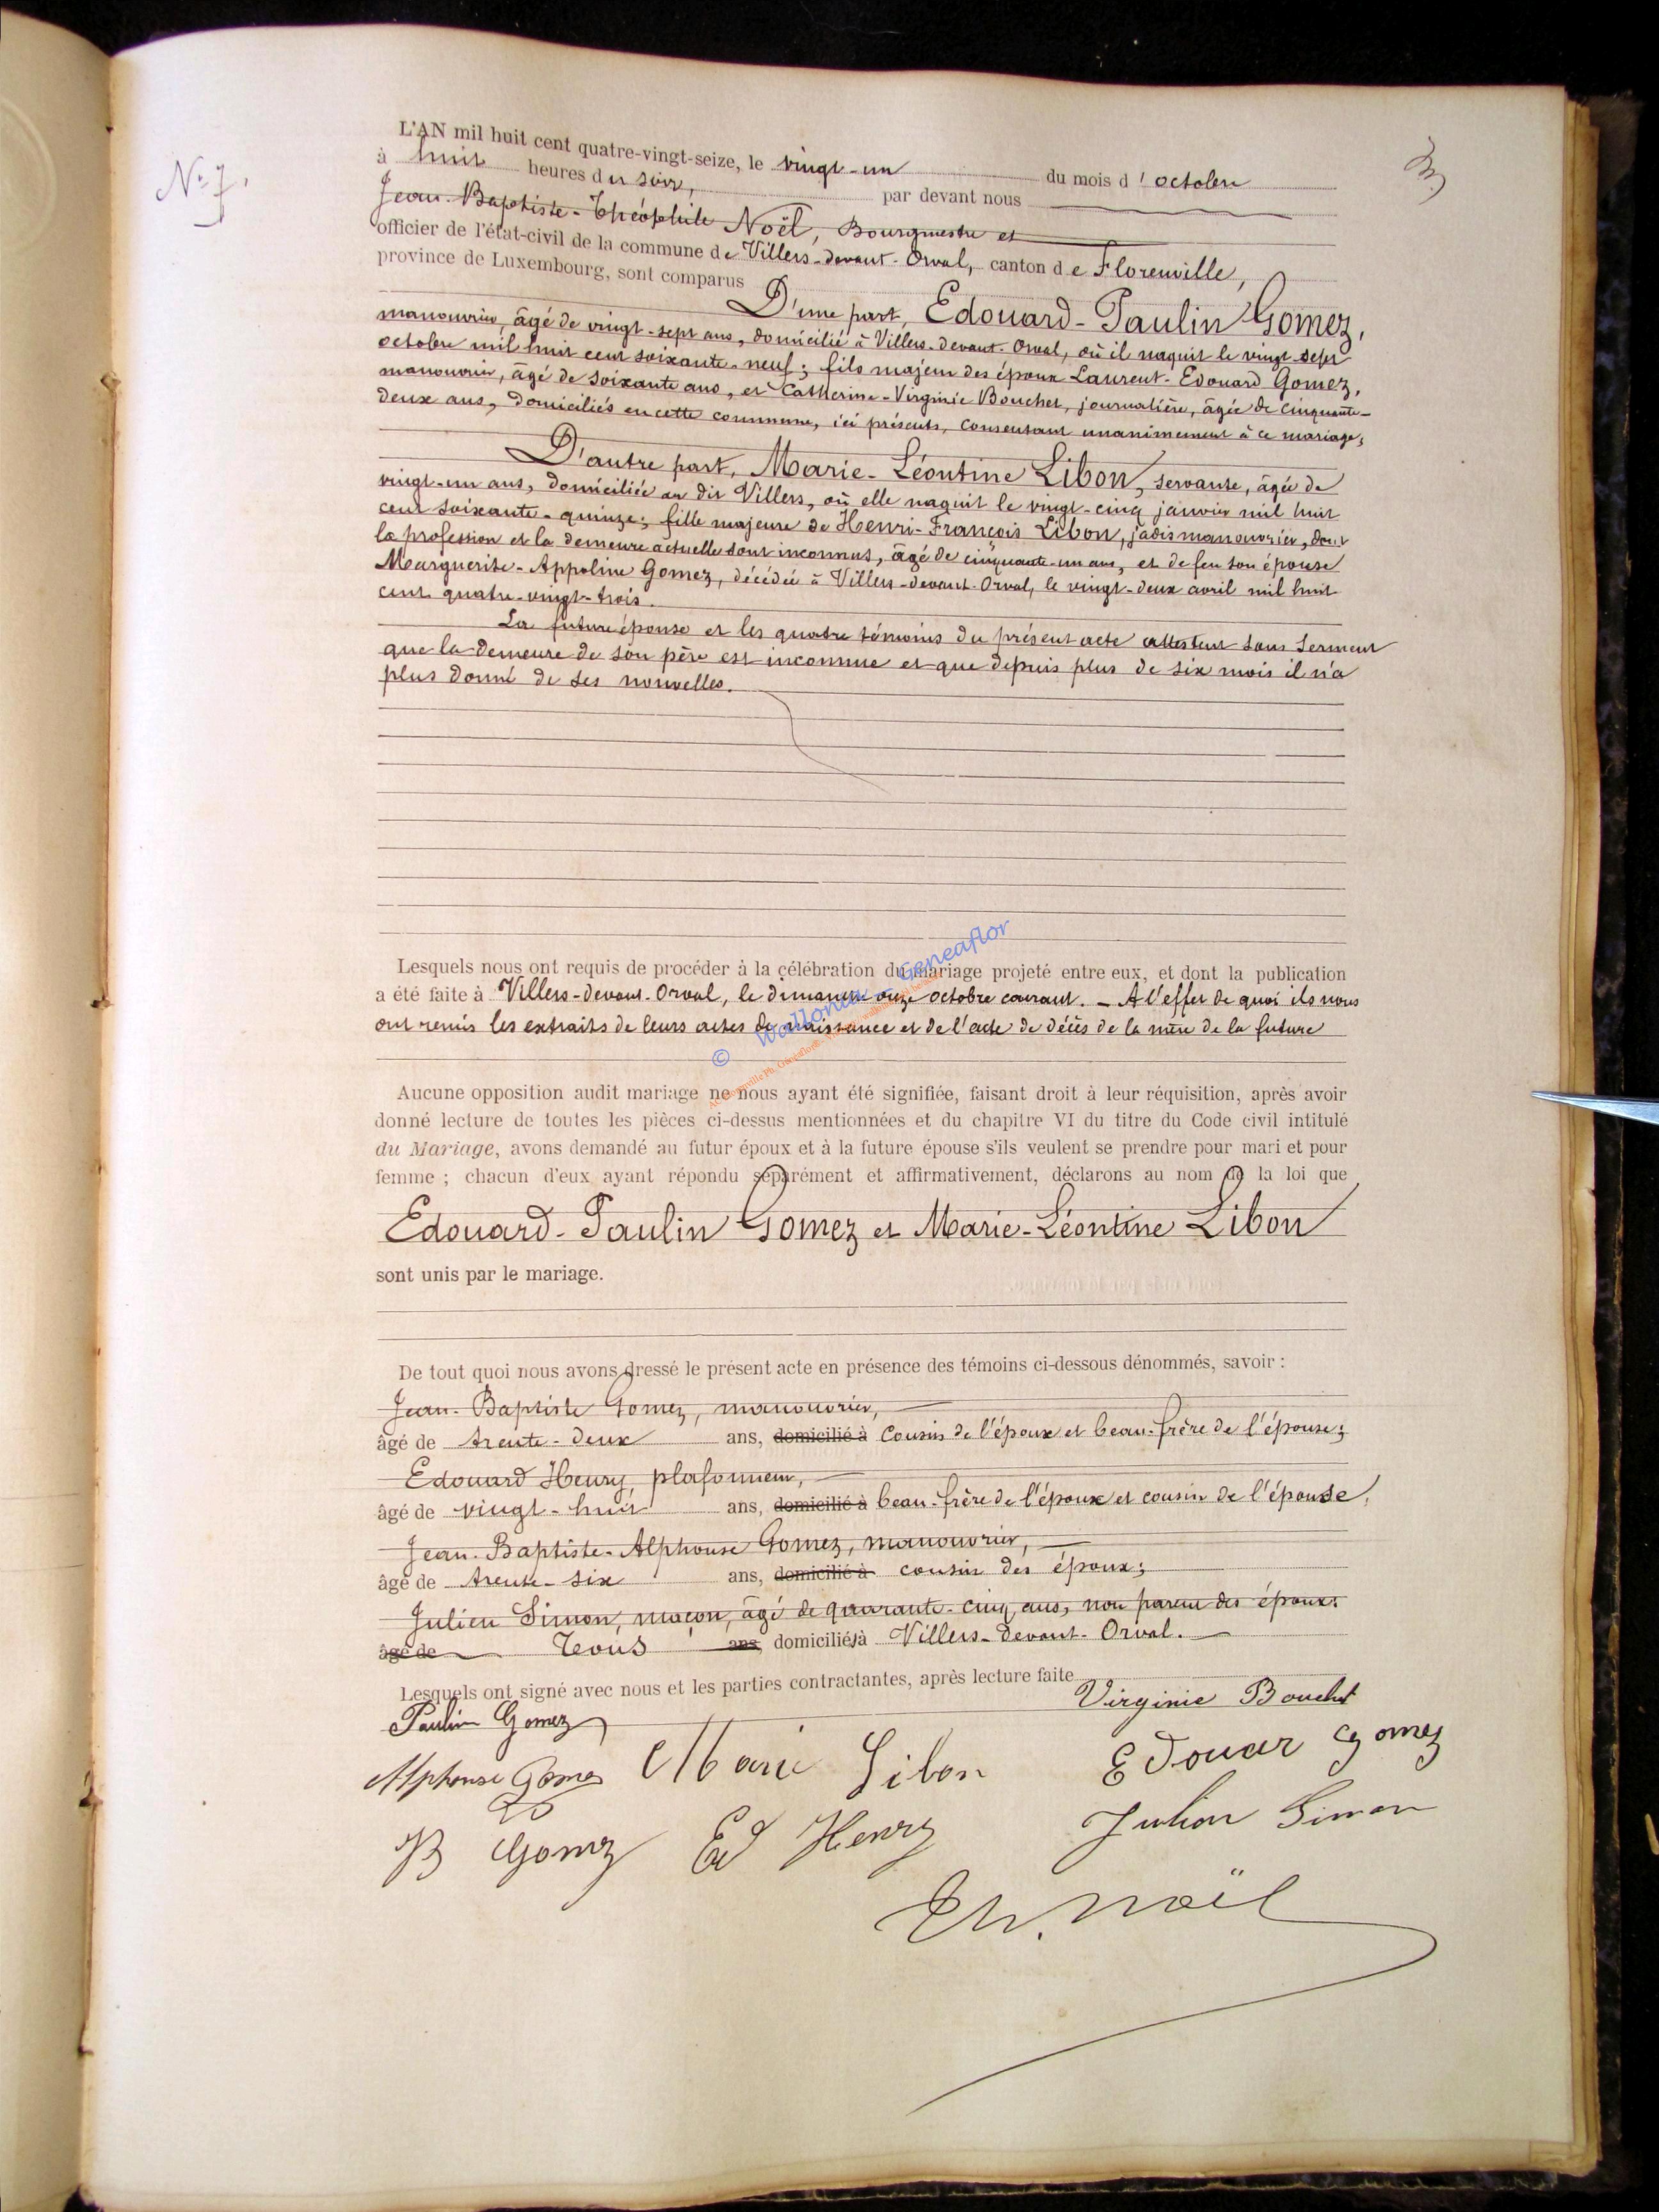 N° 7.
3
L'AN mil huit cent quatre-vingt-seize, le vingt-un du mois d'octobre
à huit heures du soir, par devant nous
Jean-Baptiste-Théophile Noël, Bourgmestre et
officier de l'état-civil de la commune de Villers-devant-Orval, canton de Florenville,
province de Luxembourg, sont comparus
D'une part, Edouard-Paulin Gomez,
manouvrier, âgé de vingt-sept ans, domicilié à Villers-devant-Orval, où il naquit le vingt-sept
octobre mil huit cent soixante-neuf; fils majeur des époux Laurent-Edouard Gomez,
manouvrier, âgé de soixante ans, et Catherine-Virginie Bouchet, journalière, âgée de cinquante-
deux ans, domiciliés en cette commune, ici présents, consentant unanimement à ce mariage;
D'autre part, Marie-Léontine Libon, servante, âgée de
vingt-un ans, domiciliée au dit Villers, où elle naquit le vingt-cinq janvier mil huit
cent soixante-quinze; fille majeure de Henri-François Libon, jadis manouvrier, dont
la profession et la demeure actuelle sont inconnus, âgé de cinquante-un ans, et de feu son épouse
Marguerite-Appoline Gomez, décédée à Villers-devant-Orval, le vingt-deux avril mil huit
cent quatre-vingt-trois.
La future épouse et les quatre témoins du présent acte attestent sous serment
que la demeure de son père est inconnue et que depuis plus de six mois il n'a
plus donné de ses nouvelles.
Lesquels nous ont requis de procéder à la célébration du mariage projeté entre eux, et dont la publication
a été faite à Villers-devant-Orval, le dimanche onze octobre courant. - A l'effet de quoi ils nous
ont remis les extraits de leurs actes de naissance et de l'acte de décès de la mère de la future
© Wallonia Geneaflor
Aucune opposition audit mariage ne nous ayant été signifiée, faisant droit à leur réquisition, après avoir
donné lecture de toutes les pièces ci-dessus mentionnées et du chapitre VI du titre du Code civil intitulé
du Mariage, avons demandé au futur époux et à la future épouse s'ils veulent se prendre pour mari et pour
femme ; chacun d'eux ayant répondu séparément et affirmativement, déclarons au nom de la loi que
Edouard-Paulin Gomez et Marie-Léontine Libon
sont unis par le mariage.
De tout quoi nous avons dressé le présent acte en présence des témoins ci-dessous dénommés, savoir :
Jean-Baptiste Gomez, manouvrier,
âgé de trente-deux ans, domicilié à cousin de l'époux et beau-frère de l'épouse;
Edouard Henry, plafonneur,
âgé de vingt-huit ans, domicilié à beau-frère de l'époux et cousin de l'épouse,
Jean-Baptiste-Alphonse Gomez, manouvrier,
âgé de trente-six ans, domicilié à cousin des époux;
Julien Simon, maçon, âgé de quarante-cinq ans, non parent des époux.
âgé de Tous ans, domiciliés à Villers-devant-Orval.
Lesquels ont signé avec nous et les parties contractantes, après lecture faite
Paulin Gomez Virginie Bouchet
Alphonse Gomez Marie Libon Edouar Gomez
B Gomez Ed Henry Julien Simon
Th. Noël